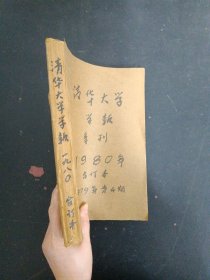 清华大学学报 一九八〇 合订本
清华大学
学报
季刊
1980年
合订本
79年第4期